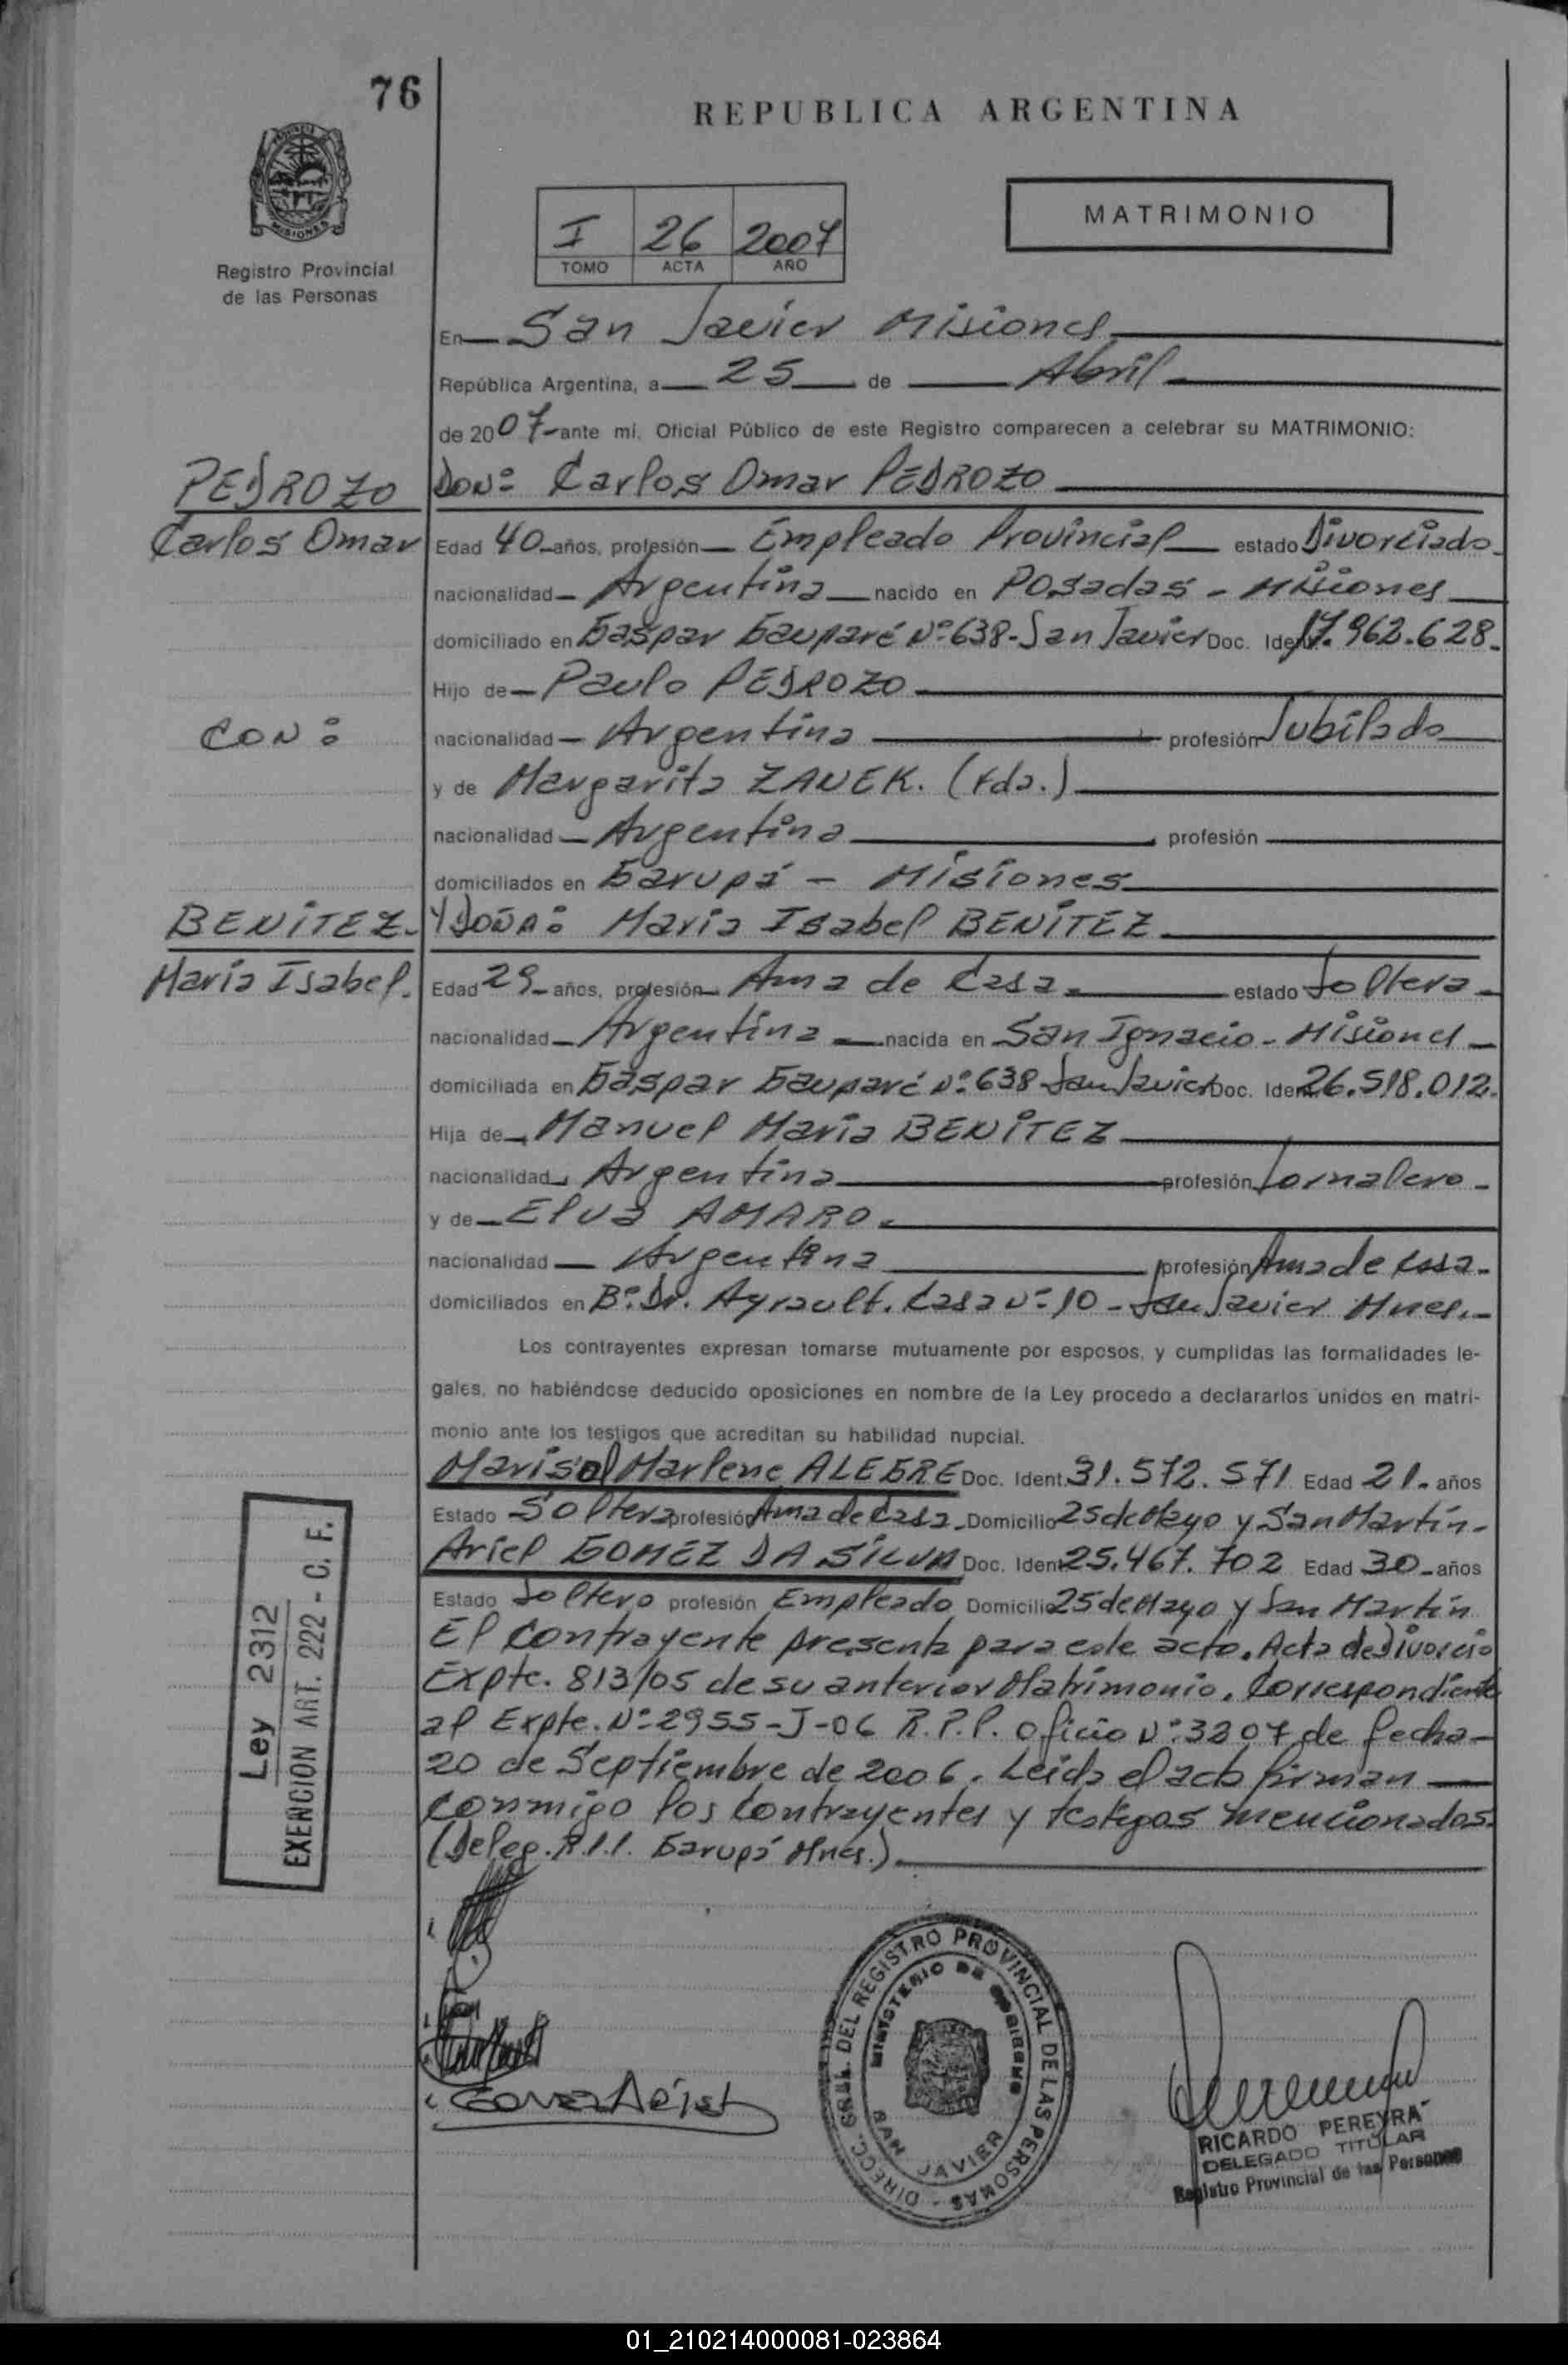 76
REPUBLICA ARGENTINA
MISIONES
Registro Provincial
de las Personas
I 26 2007
TOMO ACTA AÑO
MATRIMONIO
En San Javier Misiones
República Argentina, a 25 de Abril
de 2007 ante mí, Oficial Público de este Registro comparecen a celebrar su MATRIMONIO:
PEDROZO
Carlos Omar
DON: Carlos Omar PEDROZO
Edad 40 años, profesión Empleado Provincial estado Divorciado
nacionalidad Argentina nacido en Posadas - Misiones
domiciliado en Gaspar Gauparé Nº 638 - San Javier Doc. Ident. 17.962.628.
Hijo de Paulo PEDROZO
CON:
nacionalidad Argentina profesión Jubilado
y de Margarita ZANEK. (Fda.)
nacionalidad Argentina profesión
domiciliados en Garupá - Misiones
BENITEZ.
María Isabel.
Y DOÑA: Maria Isabel BENITEZ
Edad 29 años, profesión Ama de Casa. estado Soltera
nacionalidad Argentina nacida en San Ignacio - Misiones
domiciliada en Gaspar Gauparé Nº 638 San Javier Doc. Ident. 26.518.012.
Hija de Manuel Maria BENITEZ
nacionalidad Argentina profesión Jornalero
y de Elva AMARO.
nacionalidad Argentina profesión Ama de Casa.
domiciliados en Bº Dr. Ayrault. Casa Nº 10 - San Javier Mnes.
Los contrayentes expresan tomarse mutuamente por esposos, y cumplidas las formalidades le-
gales, no habiéndose deducido oposiciones en nombre de la Ley procedo a declararlos unidos en matri-
monio ante los testigos que acreditan su habilidad nupcial.
Marisol Marlene ALEGRE Doc. Ident. 31.572.571 Edad 21. años
Estado Soltera profesión Ama de Casa. Domicilio 25 de Mayo y San Martín.
Ariel GOMEZ DA SILVA Doc. Ident. 25.467.702 Edad 30 años
Estado Soltero profesión Empleado Domicilio 25 de Mayo y San Martín
El Contrayente presenta para este acto. Acta de Divorcio
Expte. 813/05 de su anterior Matrimonio. Correspondiente
al Expte. Nº 2955-J-06 R.P.P. Oficio Nº 3207 de fecha
20 de Septiembre de 2006. Leída el acta firman
conmigo los contrayentes y testigos mencionados.
(Deleg. R.P.P. Garupá Mnes.)
Ley 2312
EXENCION ART. 222 - C. F.
DIRECC. GRAL. DEL REGISTRO PROVINCIAL DE LAS PERSONAS
MINISTERIO DE GOBIERNO
SAN JAVIER
RICARDO PEREYRA
DELEGADO TITULAR
Registro Provincial de las Personas
01_210214000081-023864